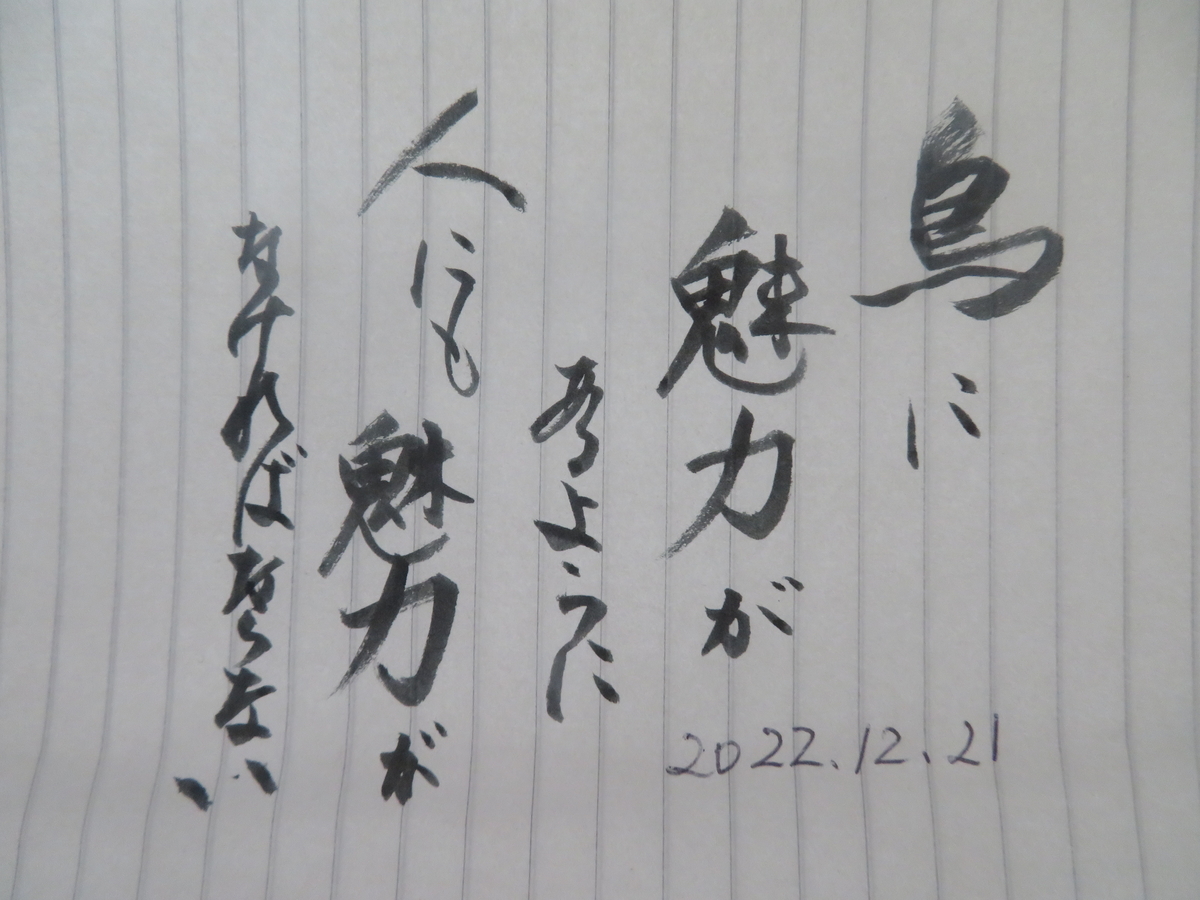 鳥に
魅力が
あるように
人にも魅力が
なければならない
2022.12.21